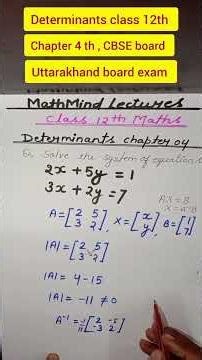 Determinants class 12th
Chapter 4 th , CBSE board
Uttarakhand board exam
MathMind Lectures
Class 12th Maths
Determinants chapter 04
Q. Solve the system of equation
2x + 5y = 1
3x + 2y = 7
AX = B
X = A⁻¹B
A = [2 5
3 2], X = [x
y], B = [1
7]
|A| = [2 5
3 2]
|A| = 4 - 15
|A| = -11 ≠ 0
A⁻¹ = -1/11 [2 -5
-3 2]